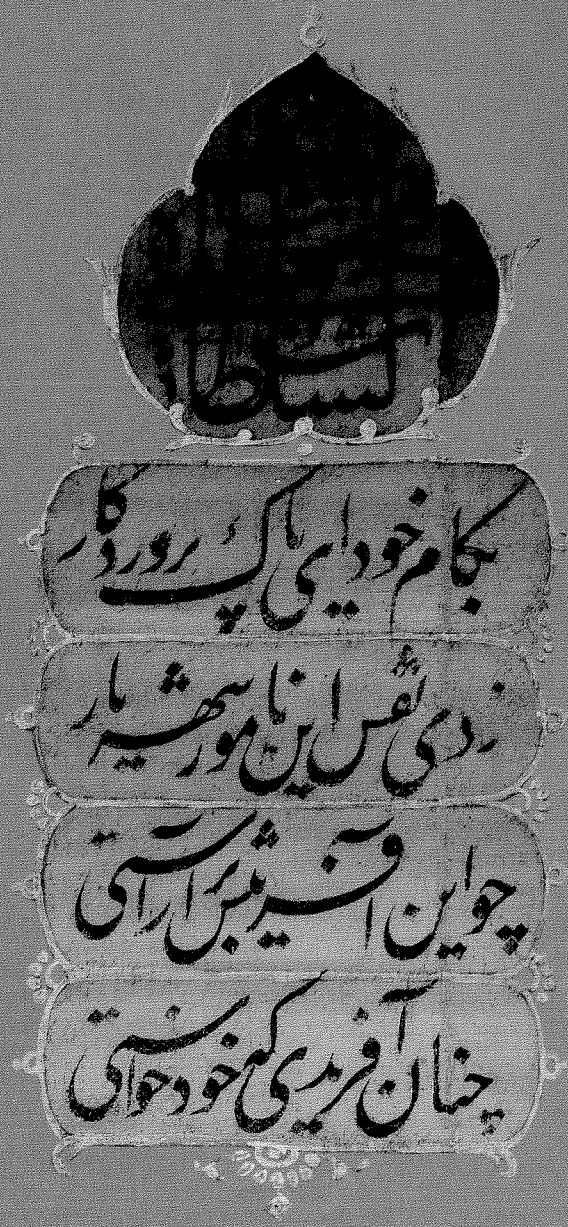 السلطان
بکام خودای پاک پروردکار
زدی نقش این نامور شهریار
چو این آفرینش برآراستی
چنان آفریدی که خود خواستی